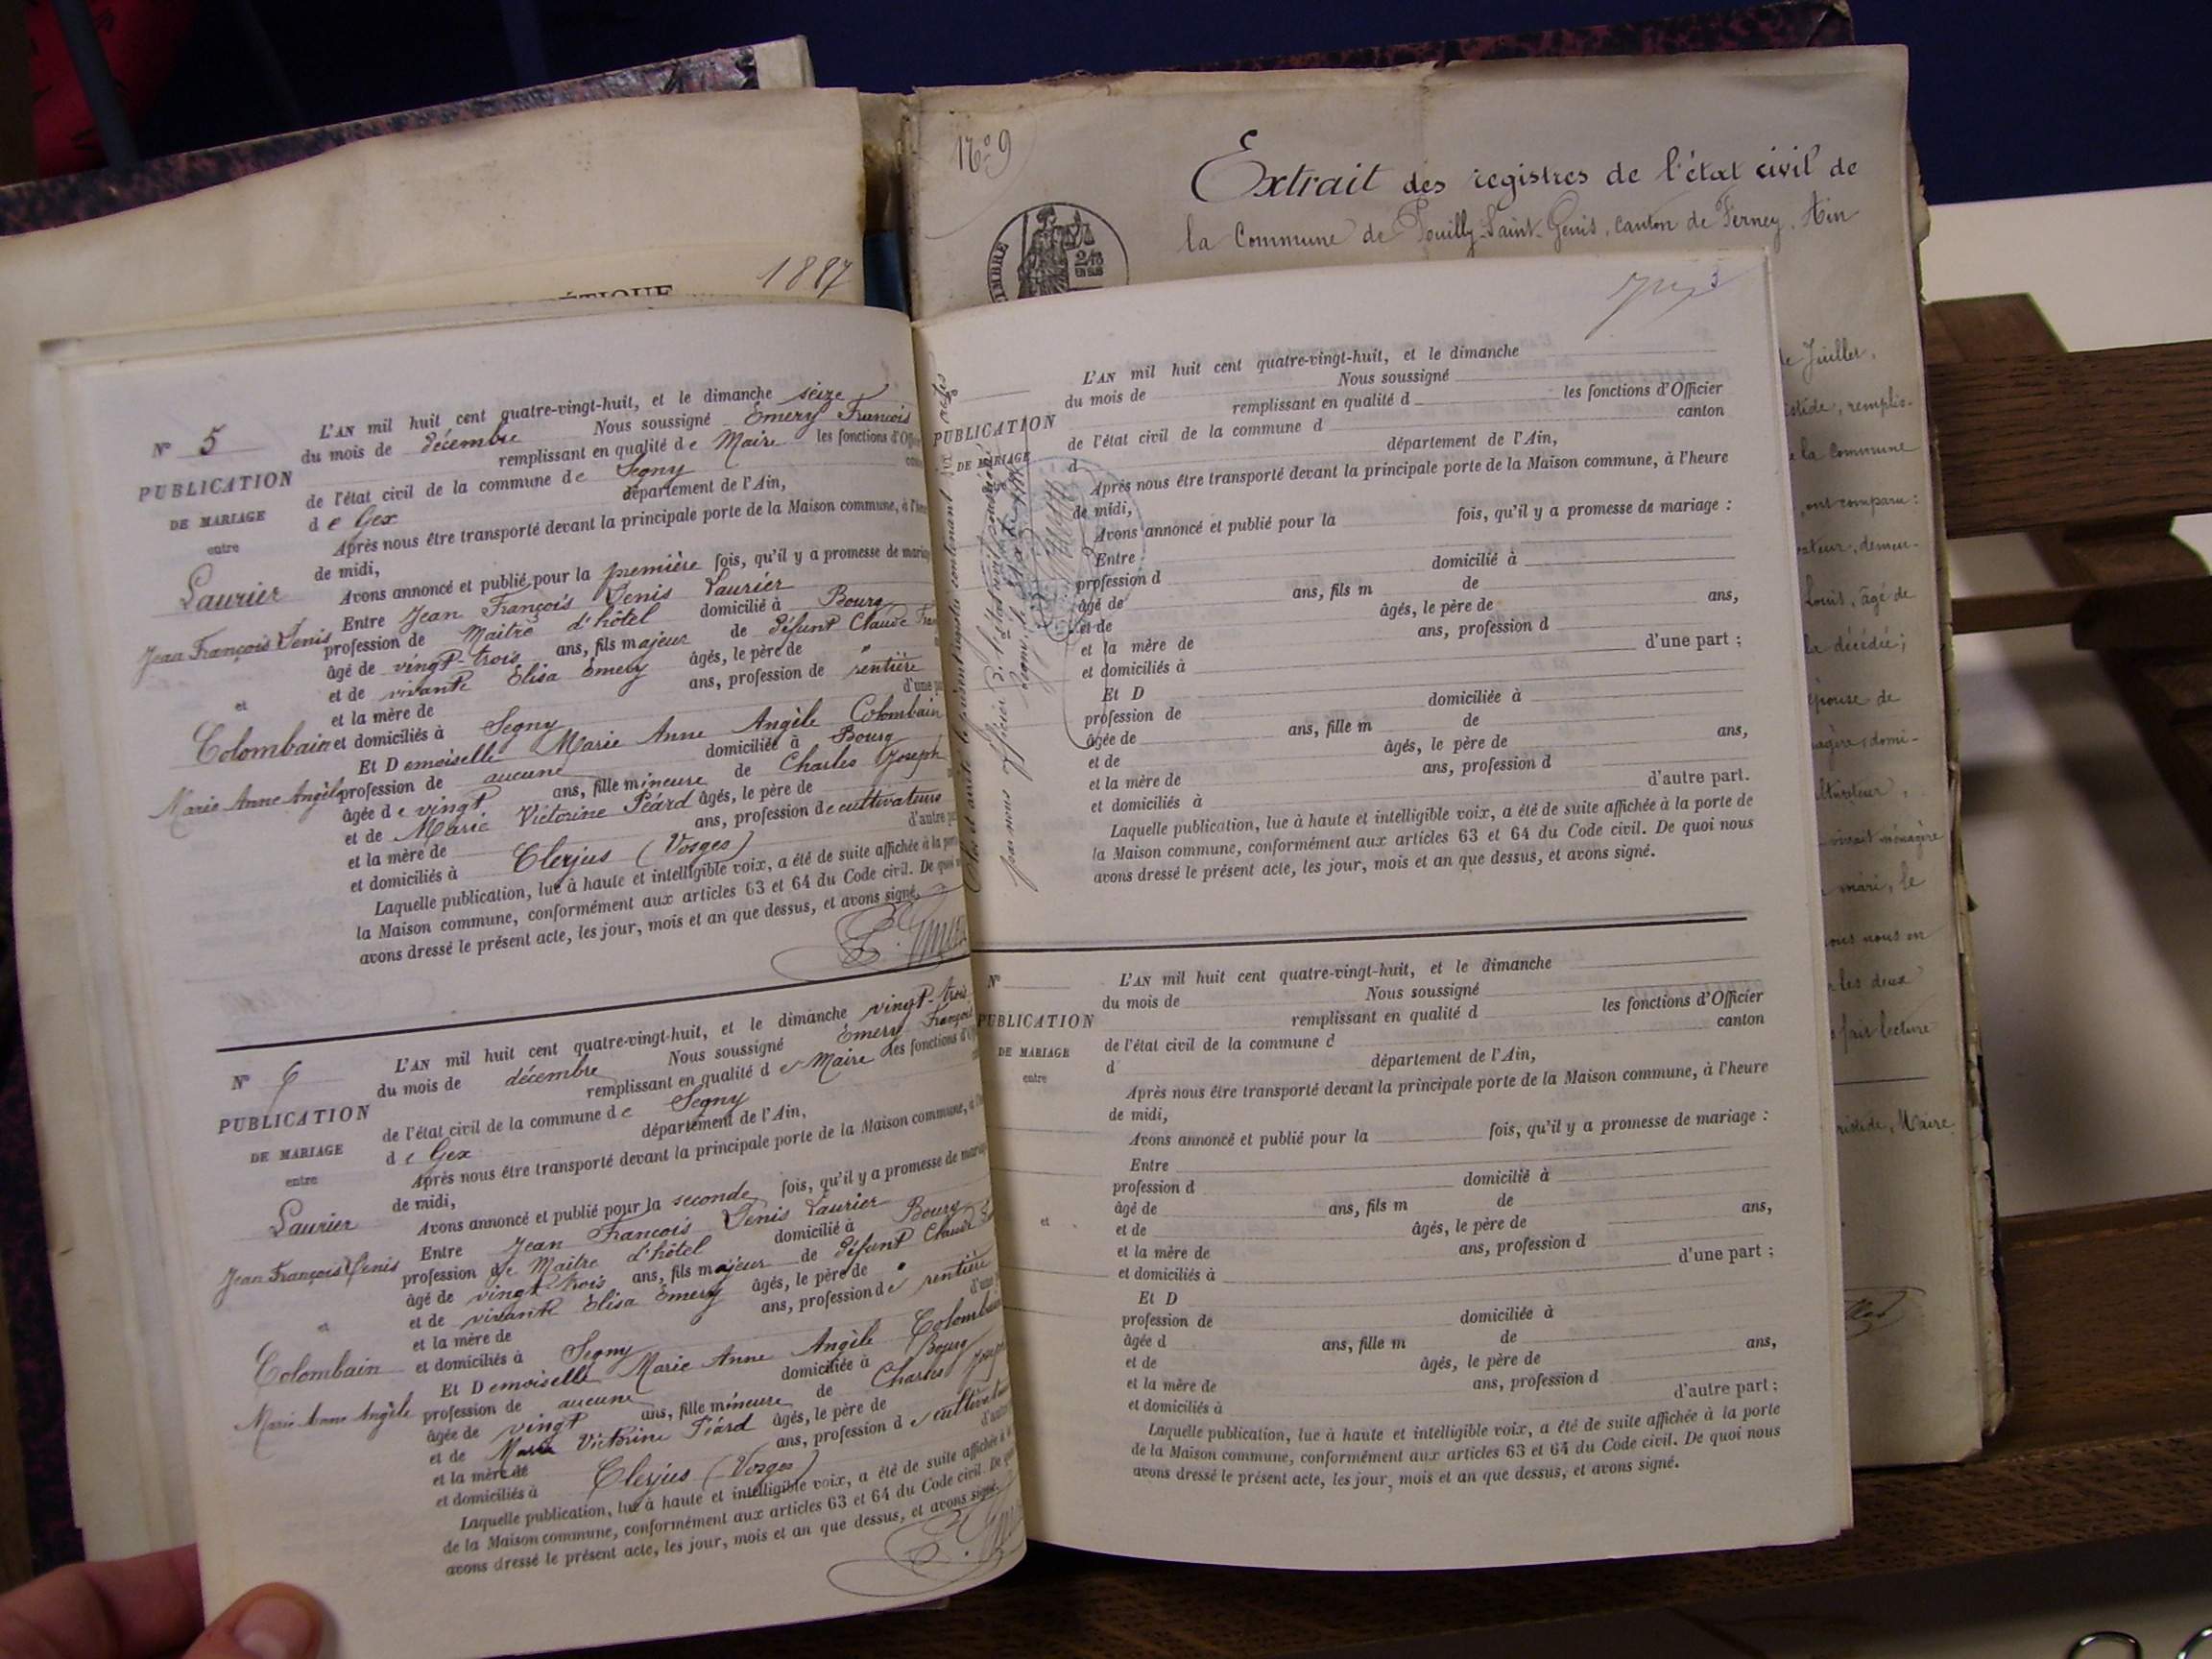 1887
N° 5
PUBLICATION
DE MARIAGE
entre
Laurier
Jean François Denis
et
Colombain
Marie Anne Angèle
L'AN mil huit cent quatre-vingt-huit, et le dimanche seize
du mois de décembre Nous soussigné Emery François
remplissant en qualité de Maire les fonctions d'Offi
de l'état civil de la commune de Segny
de Gex département de l'Ain,
Après nous être transporté devant la principale porte de la Maison commune, à l'heu
de midi,
Avons annoncé et publié pour la première fois, qu'il y a promesse de maria
Entre Jean François Denis Laurier
profession de Maitre d'hôtel domicilié à Bourg
âgé de vingt-trois ans, fils majeur de défunt Claude
et de vivante Elisa Emery âgés, le père de
et la mère de ans, profession de rentière
et domiciliés à Segny d'une
Et Demoiselle Marie Anne Angèle Colombain
profession de aucune domiciliée à Bourg
âgée de vingt ans, fille mineure de Charles Joseph
et de Marie Victorine Péard âgés, le père de
et la mère de ans, profession de cultivateurs
et domiciliés à Clerjus (Vosges) d'autre
Laquelle publication, lue à haute et intelligible voix, a été de suite affichée à la
la Maison commune, conformément aux articles 63 et 64 du Code civil. De quoi
avons dressé le présent acte, les jour, mois et an que dessus, et avons signé.
N° 6
PUBLICATION
DE MARIAGE
entre
Laurier
Jean François Denis
et
Colombain
Marie Anne Angèle
L'AN mil huit cent quatre-vingt-huit, et le dimanche vingt-trois
du mois de décembre Nous soussigné Emery François
remplissant en qualité de Maire les fonctions d'
de l'état civil de la commune de Segny
de Gex département de l'Ain,
Après nous être transporté devant la principale porte de la Maison commune, à
de midi,
Avons annoncé et publié pour la seconde fois, qu'il y a promesse de maria
Entre Jean François Denis Laurier
profession de Maitre d'hôtel domicilié à Bourg
âgé de vingt trois ans, fils majeur de défunt Claude
et de vivante Elisa Emery âgés, le père de
et la mère de ans, profession de rentière
et domiciliés à Segny d'une
Et Demoiselle Marie Anne Angèle Colombain
profession de aucune domiciliée à Bourg
âgée de vingt ans, fille mineure de Charles
et de Marie Victorine Péard âgés, le père de
et la mère de ans, profession de
et domiciliés à Clerjus (Vosges)
Laquelle publication, lue à haute et intelligible voix, a été de suite affichée à
de la Maison commune, conformément aux articles 63 et 64 du Code civil. De
avons dressé le présent acte, les jour, mois et an que dessus, et avons signé.
N° 9
Extrait des registres de l'état civil de
la Commune de Pouilly-Saint-Genis, canton de Ferney, Ain
TIMBRE
EN SUS
PUBLICATION
DE MARIAGE
L'AN mil huit cent quatre-vingt-huit, et le dimanche
du mois de Nous soussigné
remplissant en qualité d les fonctions d'Officier
de l'état civil de la commune d canton
d département de l'Ain,
Après nous être transporté devant la principale porte de la Maison commune, à l'heure
de midi,
Avons annoncé et publié pour la fois, qu'il y a promesse de mariage :
Entre
profession d domicilié à
âgé de ans, fils m de
et de âgés, le père de ans,
et la mère de ans, profession d
et domiciliés à d'une part ;
Et D
profession de domiciliée à
âgée de ans, fille m de
et de âgés, le père de ans,
et la mère de ans, profession d
et domiciliés à d'autre part.
Laquelle publication, lue à haute et intelligible voix, a été de suite affichée à la porte de
la Maison commune, conformément aux articles 63 et 64 du Code civil. De quoi nous
avons dressé le présent acte, les jour, mois et an que dessus, et avons signé.
N°
PUBLICATION
DE MARIAGE
entre
et
L'AN mil huit cent quatre-vingt-huit, et le dimanche
du mois de Nous soussigné
remplissant en qualité d les fonctions d'Officier
de l'état civil de la commune d canton
d département de l'Ain,
Après nous être transporté devant la principale porte de la Maison commune, à l'heure
de midi,
Avons annoncé et publié pour la fois, qu'il y a promesse de mariage :
Entre
profession d domicilié à
âgé de ans, fils m de
et de âgés, le père de ans,
et la mère de ans, profession d
et domiciliés à d'une part ;
Et D
profession de domiciliée à
âgée d ans, fille m de
et de âgés, le père de ans,
et la mère de ans, profession d
et domiciliés à d'autre part ;
Laquelle publication, lue à haute et intelligible voix, a été de suite affichée à la porte
de la Maison commune, conformément aux articles 63 et 64 du Code civil. De quoi nous
avons dressé le présent acte, les jour, mois et an que dessus, et avons signé.
de Juillet,
la Commune
ont comparu :
Louis, âgé de
décédée ;
épouse de
mari, le
les deux
lecture
Maire